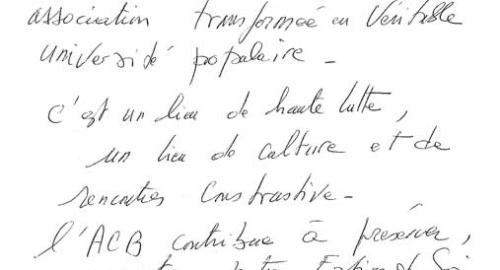 association transformée en véritable
université populaire -
c'est un lieu de haute lutte,
un lieu de culture et de
rencontres constructive -
l'ACB contribue à préserver,